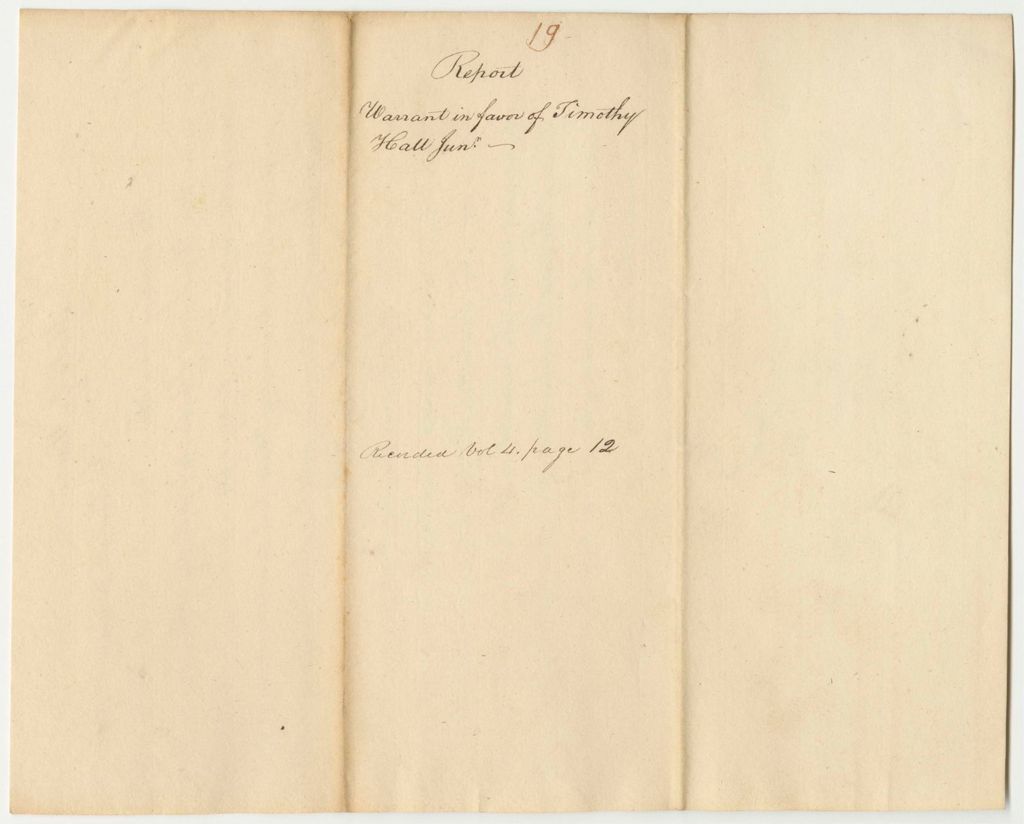 19-
Report
Warrant in favor of Timothy
Hall Junr. —
Recorded Vol 4. page 12